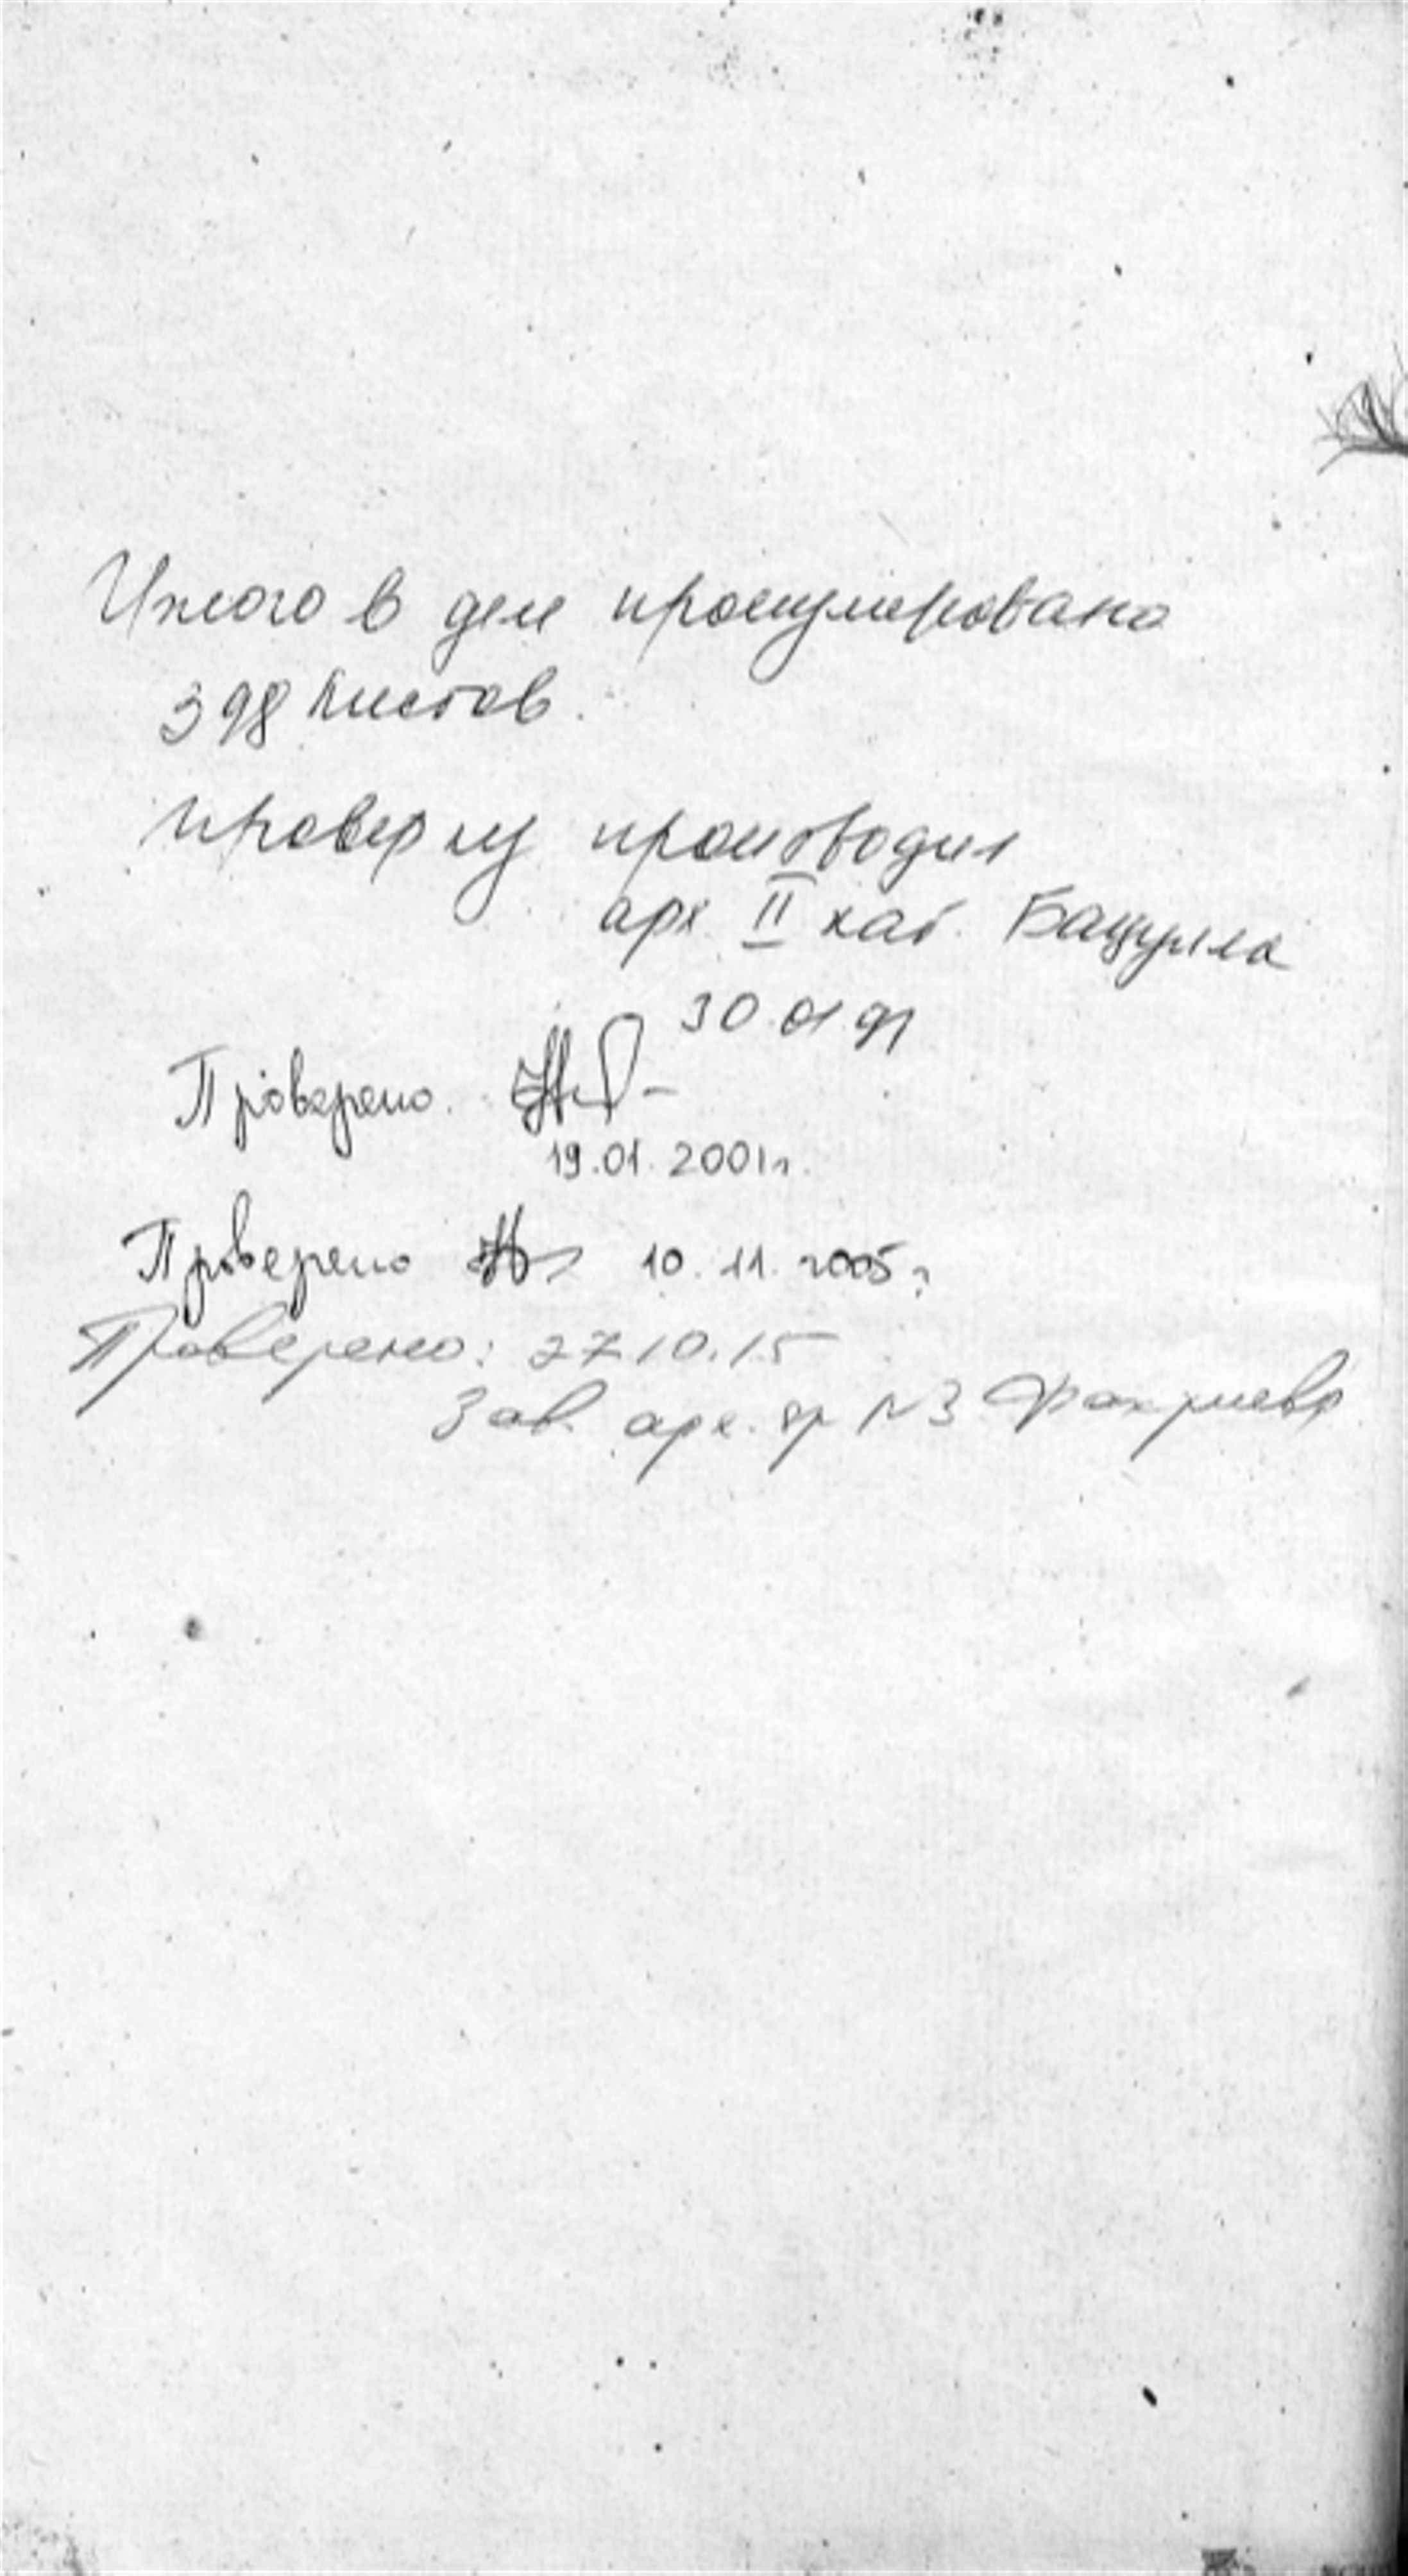 Итого в деле пронумеровано
398 листов.
проверку производил
арх. II кат. Бацулла
30.01.91
Проверено.
19.01.2001г.
Проверено 10.11.2005г
Проверено: 27.10.15
Зав. арх. гр N3 Фахриева